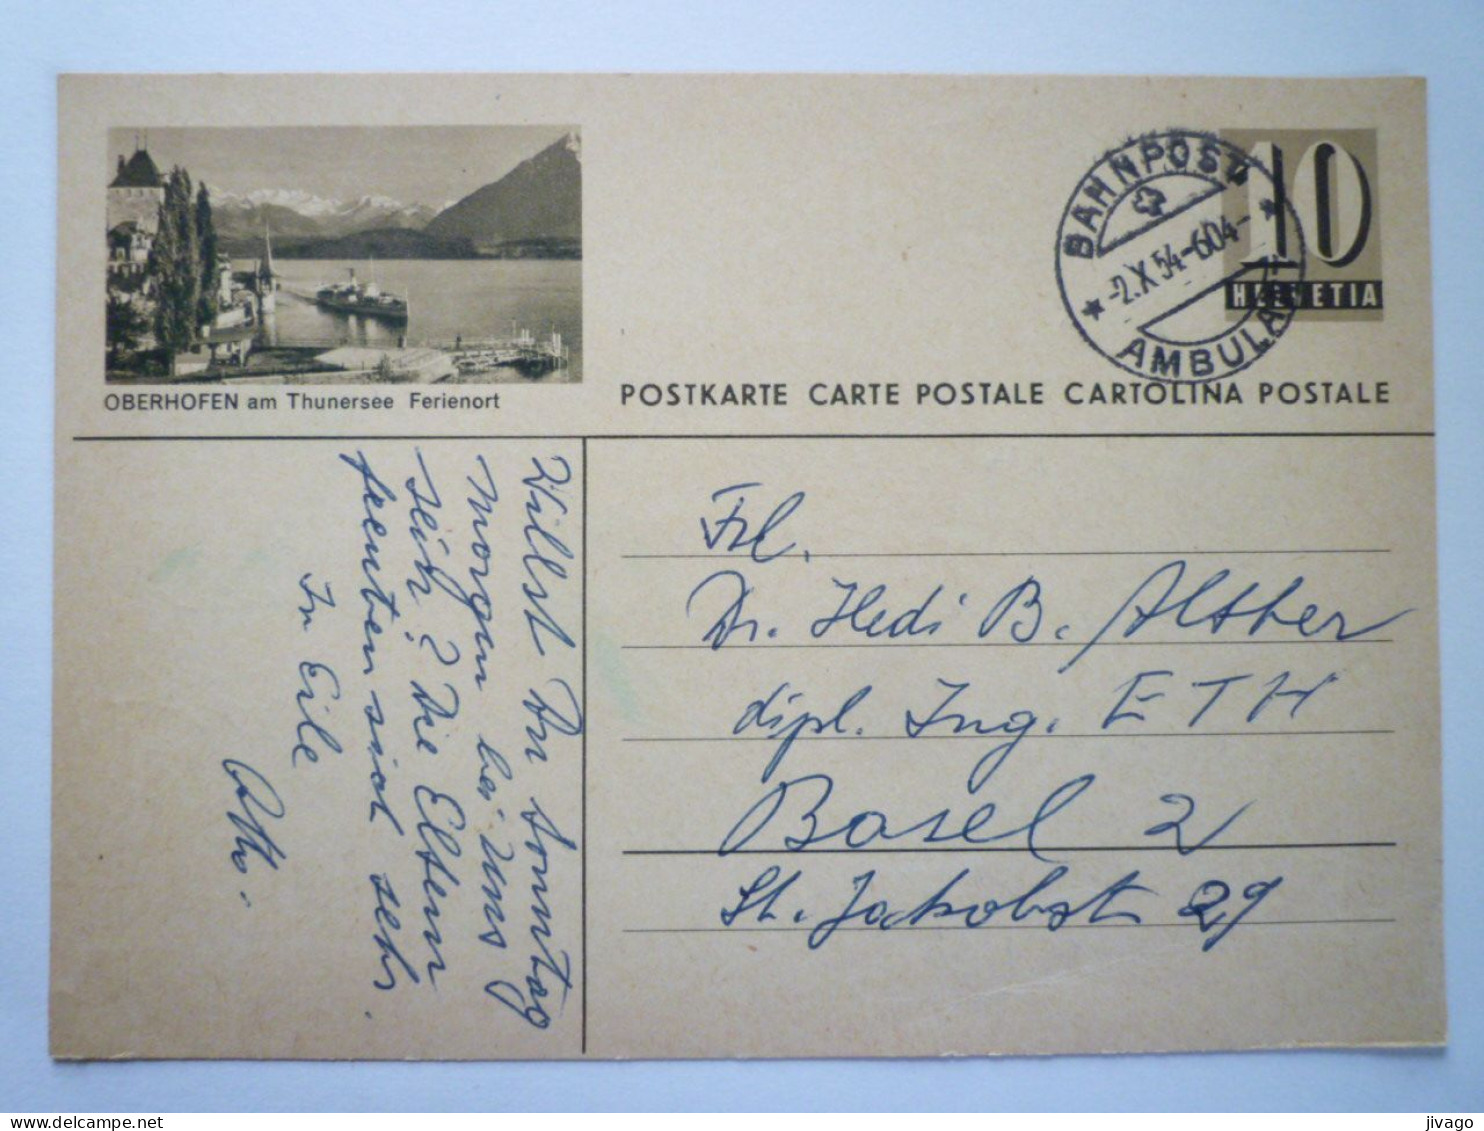 OBERHOFEN am Thunersee Ferienort
BAHNPOST
-2.X.54-604-
AMBULANT
10
HELVETIA
POSTKARTE CARTE POSTALE CARTOLINA POSTALE
Willst Du Sonntag
Morgen bei uns
sein? Die Eltern
freuten sich sehr.
In Eile
Otto.
Frl.
Dr. Hedi B. Alther
dipl. Ing. ETH
Basel 2
St. Jakobst 29
jivago